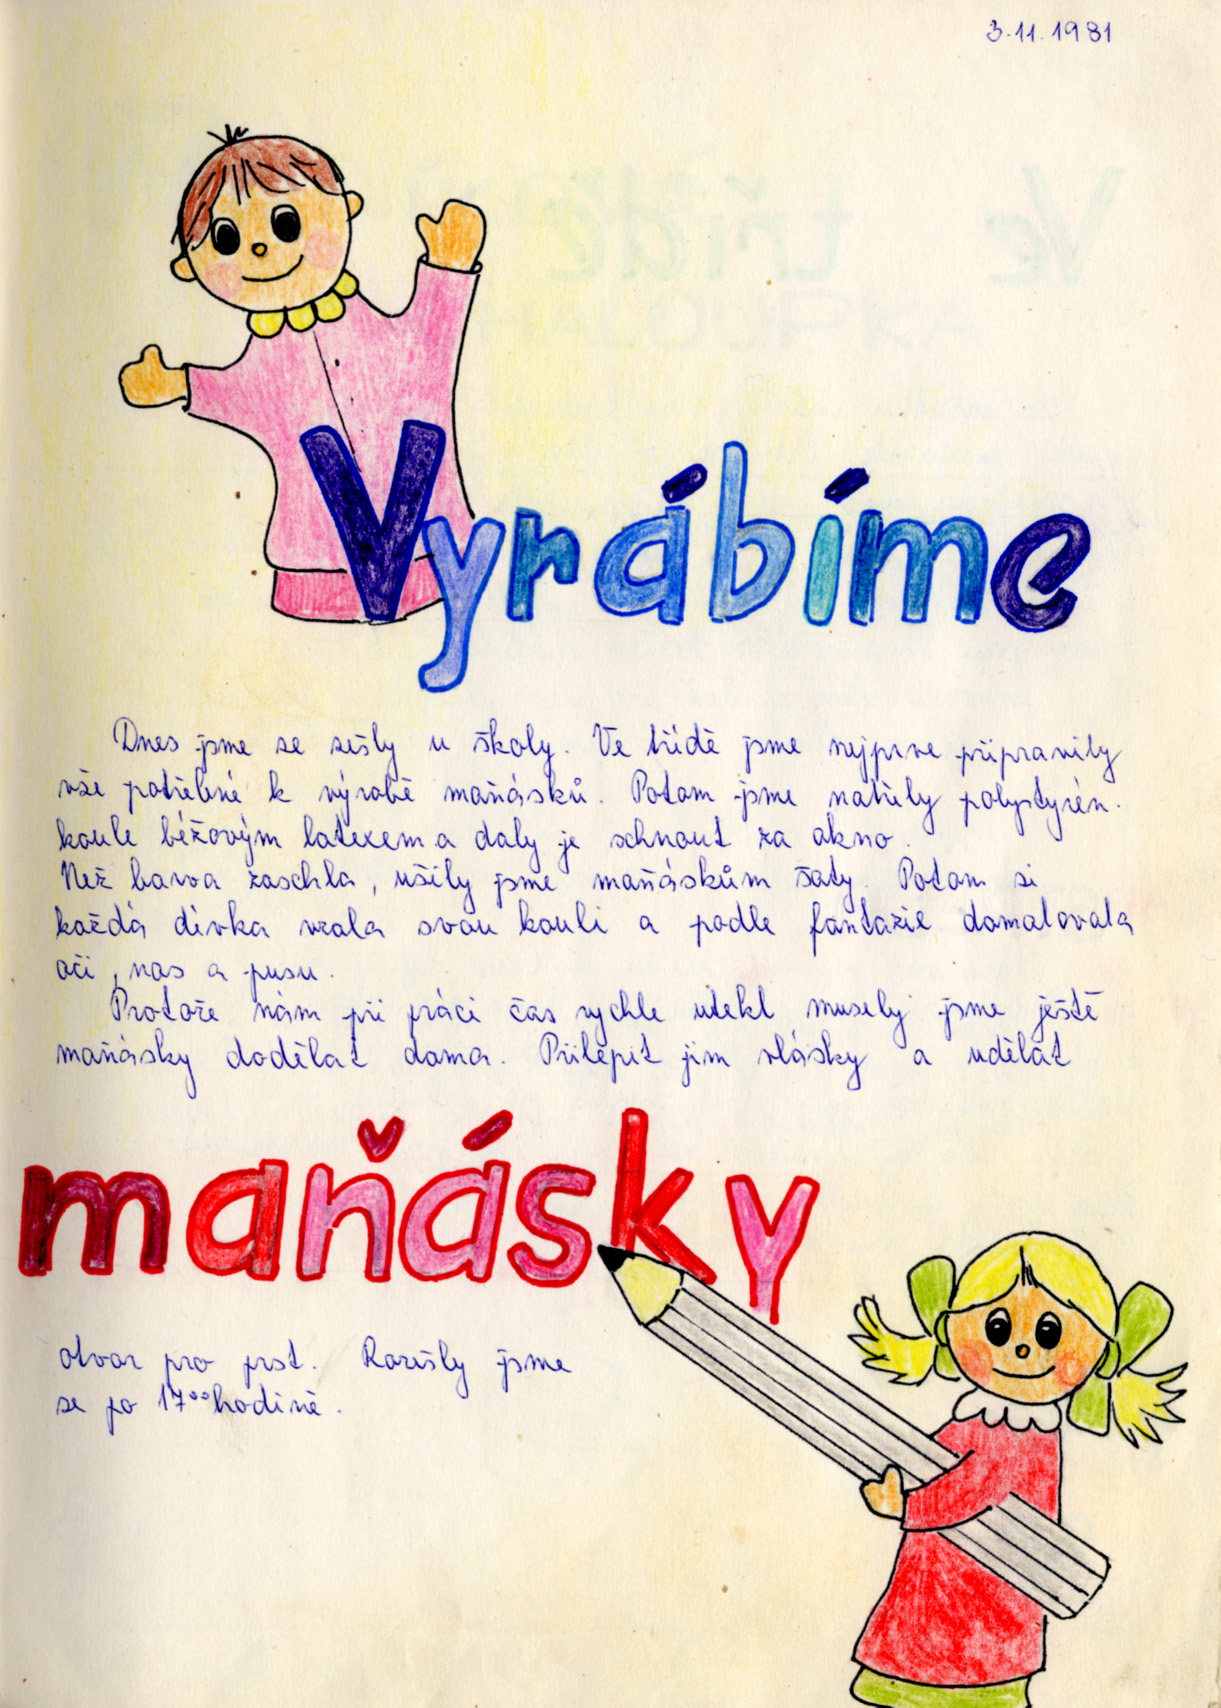 3.11.1981
Vyrábíme
Dnes jsme se sešly u školy. Ve třídě jsme nejprve připravily
vše potřebné k výrobě maňásků. Potom jsme natřely polystyrén.
koule béžovým latexem a daly je schnout za okno.
Než barva zaschla, ušily jsme maňáskům šaty. Potom si
každá dívka vzala svou kouli a podle fantazie domalovala
oči, nos a pusu.
Protože nám při práci čas rychle utekl musely jsme ještě
maňásky dodělat doma. Přilepit jim vlásky a udělat
maňásky
otvor pro prst. Rozešly jsme
se po 17⁰⁰ hodině.